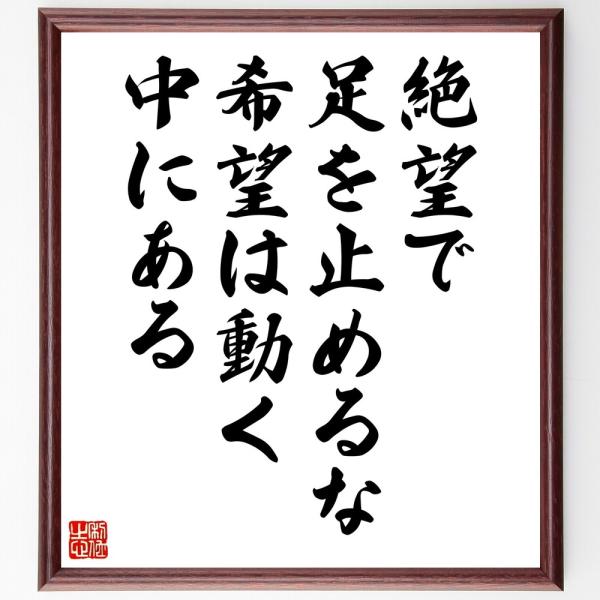 絶望で
足を止めるな
希望は動く
中にある